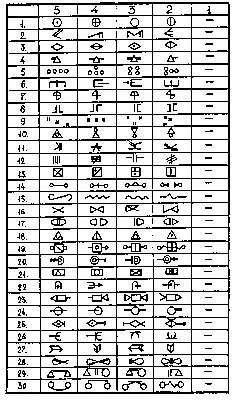 5 4 3 2 1
1. –
2. –
3. –
4. –
5 –
6. –
7. –
8 –
9 –
10. –
11. –
12 –
13. –
14. –
15. –
16 –
17. –
18. –
19. –
20. –
21. –
22 –
23. –
24. –
25. –
26 –
27. –
28 –
29. –
30 –